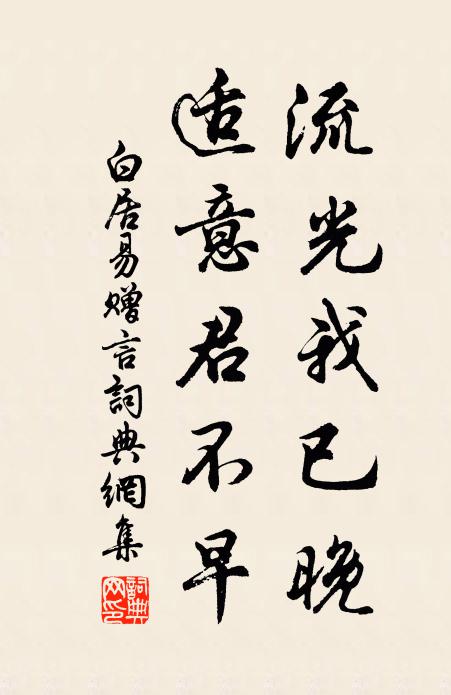 流光我已晚
适意君不早
白居易赠言詞典網集
詞典网印